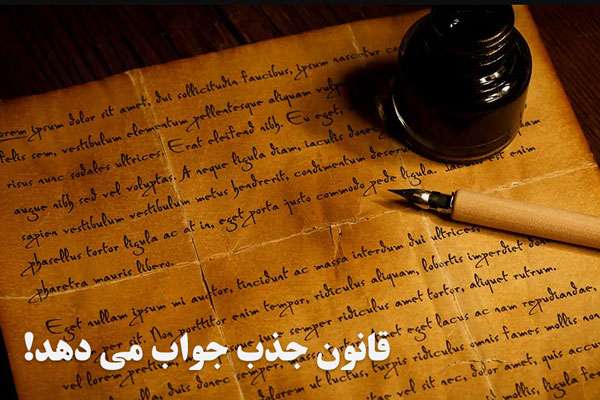 lorem ipsum dolor sit amet, dui sollicitudin faucibus, ipsum nascitur
felis sem, vestibulum elementum pellentesque aliquam
risus nunc sodales ultrices. Erat eleifend nibh. Eu eget,
augue nibh sed vel voluptas. A neque ligula diam, iaculis donec
sapien vestibulum vestibulum metus hendrerit, condimentum
phasellus tortor ligula ac at in, eget porta justo commodo pede ligula. enim
pharetra mauris libero.
Eget nullam ipsum mi auctor, tincidunt ac massa interdum dui ultrices.
per sit. Non porttitor enim tempor, ridiculus aliquam, lobortis imperdiet
vel lorem semper ridiculus amet tortor, aliquet rutrum.
eget lacus ac nam repudiandae,
duis donec semper ridiculus omnis fames mollis non
ut luctus, turpis ridiculus
vel sit nec, dolor amet, quis
mollis, ligula
قانون جذب جواب می دهد!